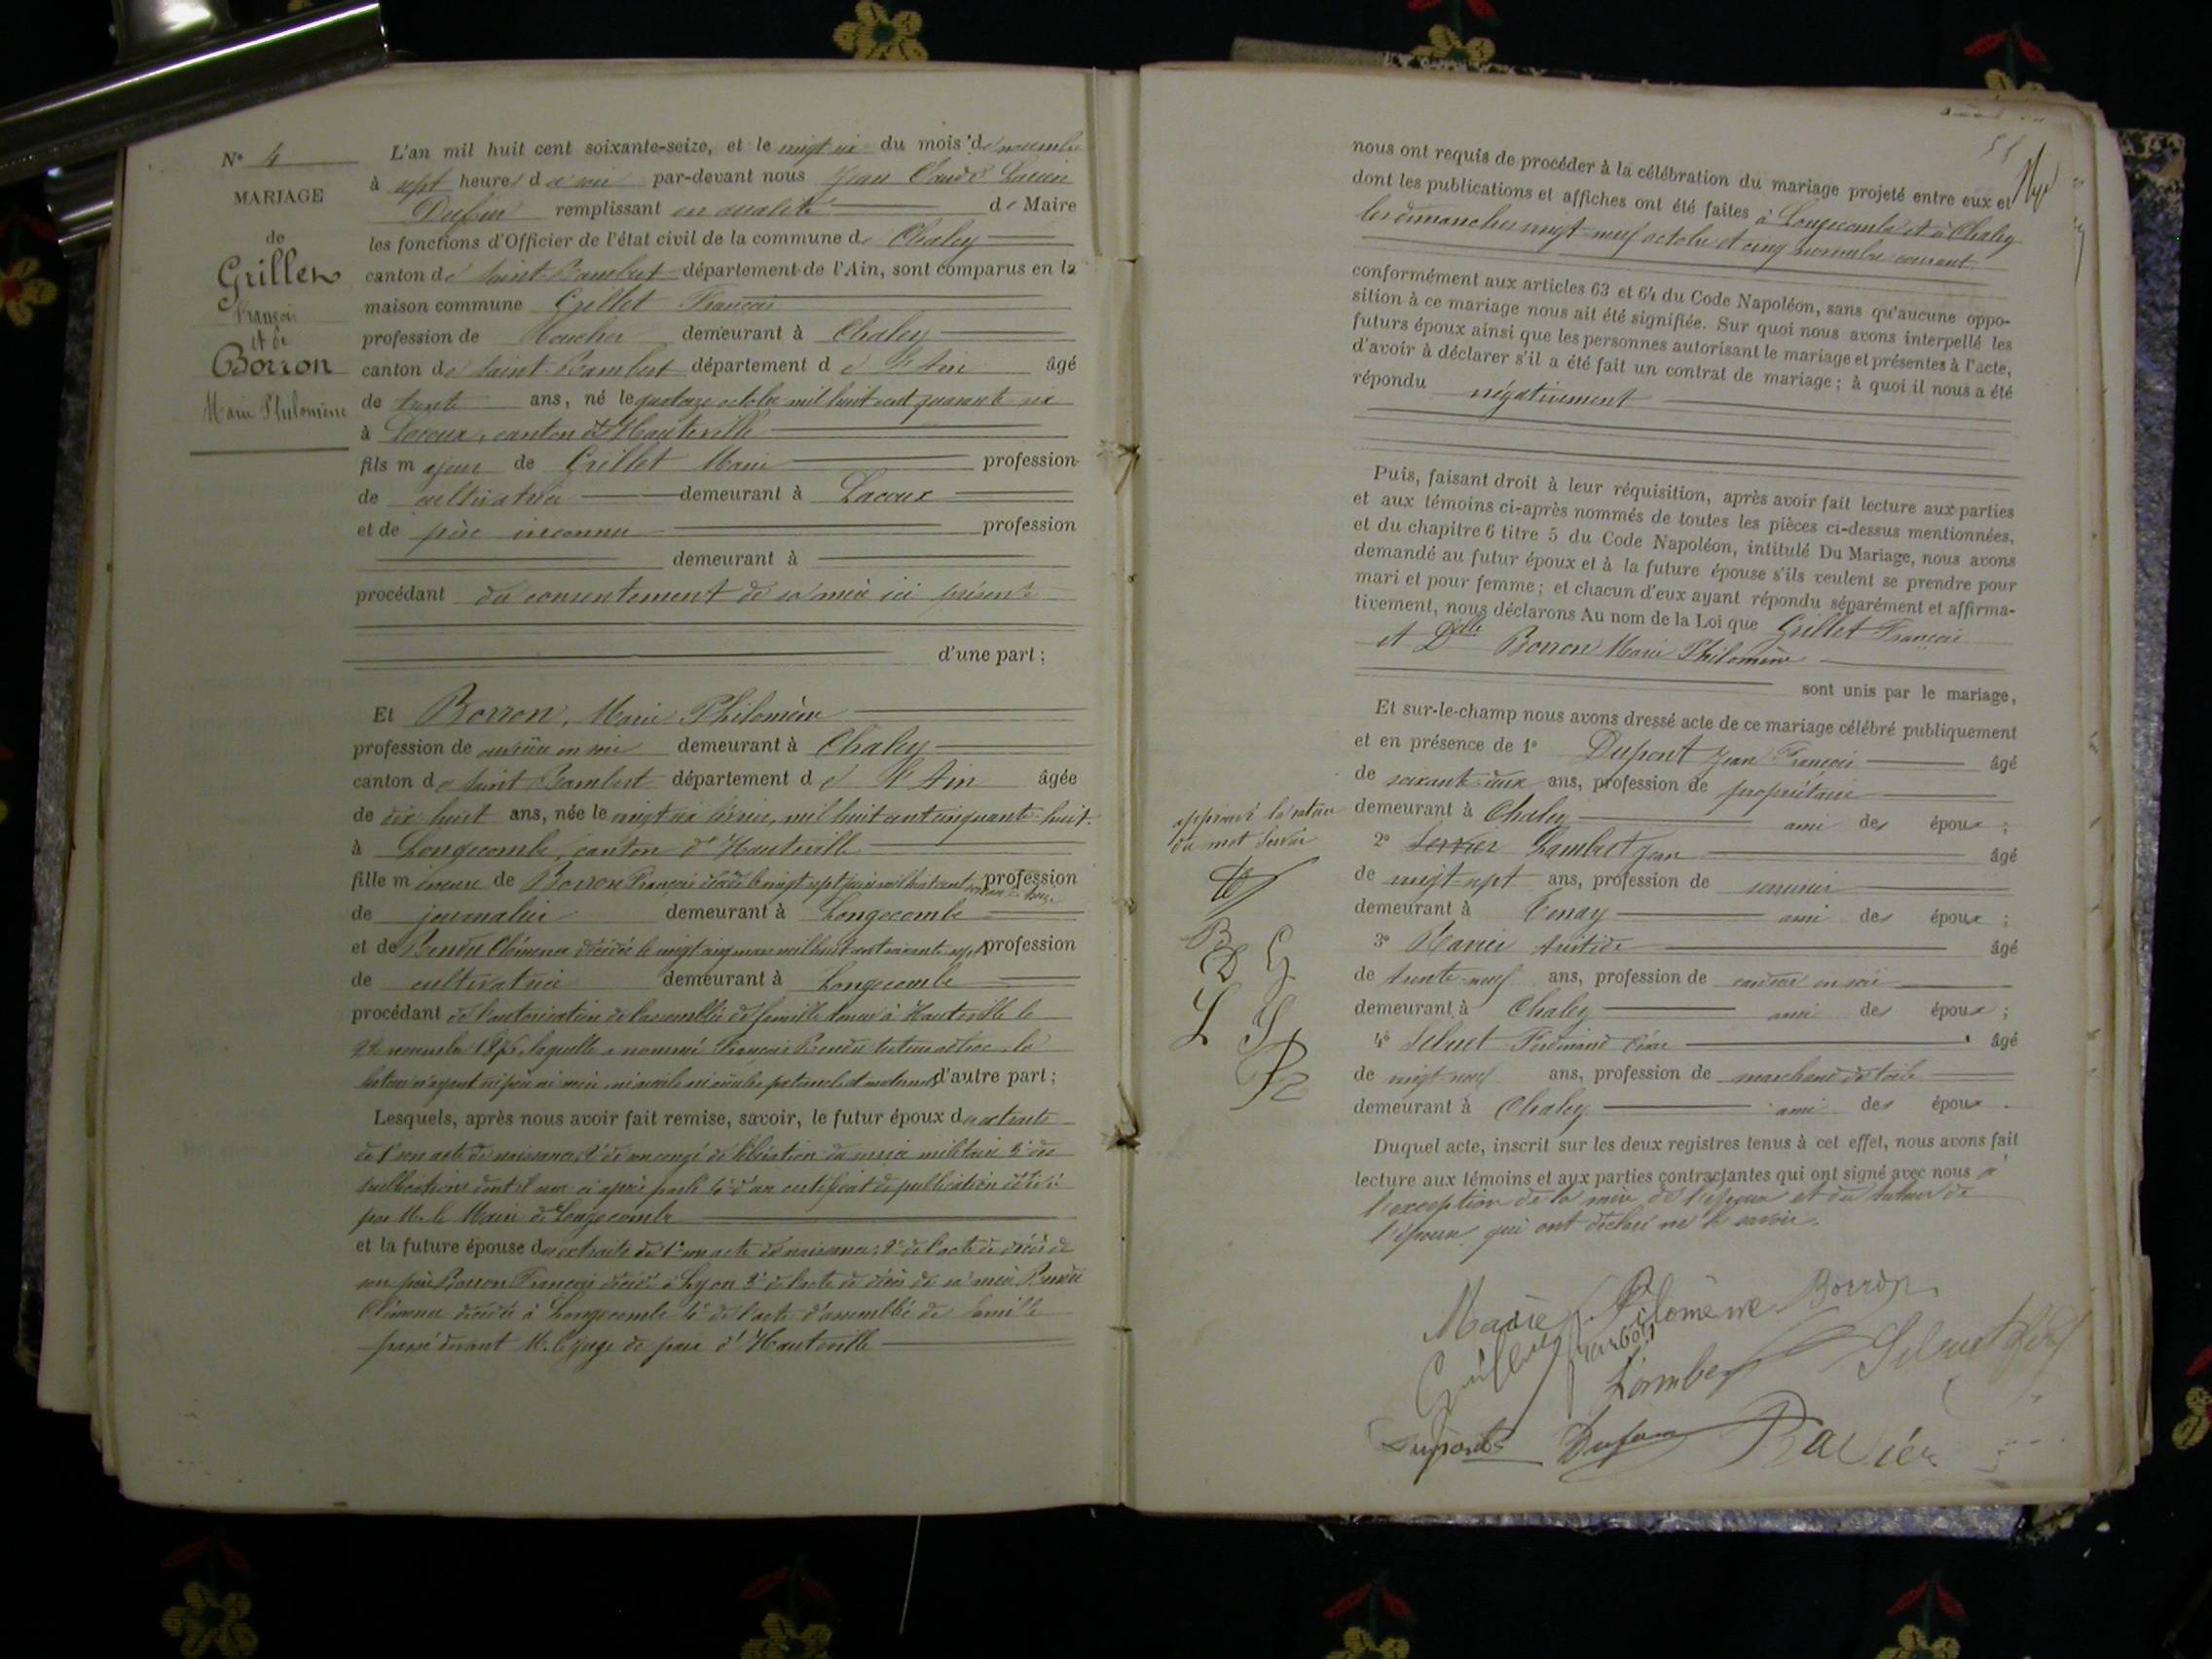 N° 4
MARIAGE
de
Grillet
François
et de
Borron
Marie Philomène
L'an mil huit cent soixante-seize, et le vingt six du mois de novembre
à sept heures du soir par-devant nous Jean Claude Lucien
Dufour remplissant en qualité de Maire
les fonctions d'Officier de l'état civil de la commune de Chaley
canton de Saint-Rambert département de l'Ain, sont comparus en la
maison commune Grillet François
profession de boucher demeurant à Chaley
canton de Saint-Rambert département de l'Ain âgé
de trente ans, né le quatorze octobre mil huit cent quarante six
à Lacoux, canton d'Hauteville
fils majeur de Grillet Marie profession
de cultivatrice demeurant à Lacoux
et de père inconnu profession
demeurant à
procédant du consentement de sa mère ici présente
d'une part ;
Et Borron, Marie Philomène
profession de ouvrière en soie demeurant à Chaley
canton de Saint Rambert département de l'Ain âgée
de dix-huit ans, née le vingt six février, mil huit cent cinquante-huit
à Longecombe, canton d'Hauteville
fille mineure de Borron François décédé le vingt sept juin mil huit cent profession
de journalier demeurant à Longecombe
et de Bendu Clémence décédée le vingt cinq mars mil huit cent soixante sept profession
de cultivatrice demeurant à Longecombe
procédant de l'autorisation de l'assemblée de famille tenue à Hauteville le
22 novembre 1876, laquelle a nommé François Bendu tuteur adhoc, la
future n'ayant ni père ni mère, ni aïeuls ni aïeules paternels et maternels d'autre part ;
Lesquels, après nous avoir fait remise, savoir, le futur époux des extraits
de 1° son acte de naissance, 2° de son congé de libération du service militaire 3° des
publications dont il sera ci après parlé 4° d'un certificat de publication délivré
par M. le Maire de Longecombe
et la future épouse des extraits de 1° son acte de naissance, 2° de l'acte de décès de
son père Borron François décédé à Lyon 3° de l'acte de décès de sa mère Bendu
Clémence décédée à Longecombe 4° de l'acte d'assemblée de famille
passé devant M. le juge de paix d'Hauteville
nous ont requis de procéder à la célébration du mariage projeté entre eux et
dont les publications et affiches ont été faites à Longecombe et à Chaley
les dimanches vingt-neuf octobre et cinq novembre courant
conformément aux articles 63 et 64 du Code Napoléon, sans qu'aucune oppo-
sition à ce mariage nous ait été signifiée. Sur quoi nous avons interpellé les
futurs époux ainsi que les personnes autorisant le mariage et présentes à l'acte,
d'avoir à déclarer s'il a été fait un contrat de mariage ; à quoi il nous a été
répondu négativement
Puis, faisant droit à leur réquisition, après avoir fait lecture aux parties
et aux témoins ci-après nommés de toutes les pièces ci-dessus mentionnées,
et du chapitre 6 titre 5 du Code Napoléon, intitulé Du Mariage, nous avons
demandé au futur époux et à la future épouse s'ils veulent se prendre pour
mari et pour femme ; et chacun d'eux ayant répondu séparément et affirma-
tivement, nous déclarons Au nom de la Loi que Grillet François
et Dlle Borron Marie Philomène
sont unis par le mariage,
Et sur-le-champ nous avons dressé acte de ce mariage célébré publiquement
et en présence de 1° Dupont Jean François âgé
de soixante-deux ans, profession de propriétaire
demeurant à Chaley ami des époux ;
2° Servier Lambert Jean âgé
de vingt-sept ans, profession de
demeurant à Tenay ami des époux ;
3° Ravier Aristide âgé
de trente-neuf ans, profession de cardeur en soie
demeurant à Chaley ami des époux ;
4° Ferdinand âgé
de vingt-neuf ans, profession de marchand de toile
demeurant à Chaley ami des époux.
Duquel acte, inscrit sur les deux registres tenus à cet effet, nous avons fait
lecture aux témoins et aux parties contractantes qui ont signé avec nous à
l'exception de la mère de l'époux et du tuteur de
l'épouse qui ont déclaré ne le savoir.
approuvé la rature
du mot Servier
B
D G
L S
Marie Philomène Borron
Grillet françois
Lambert
Dupont Dufour Ravier